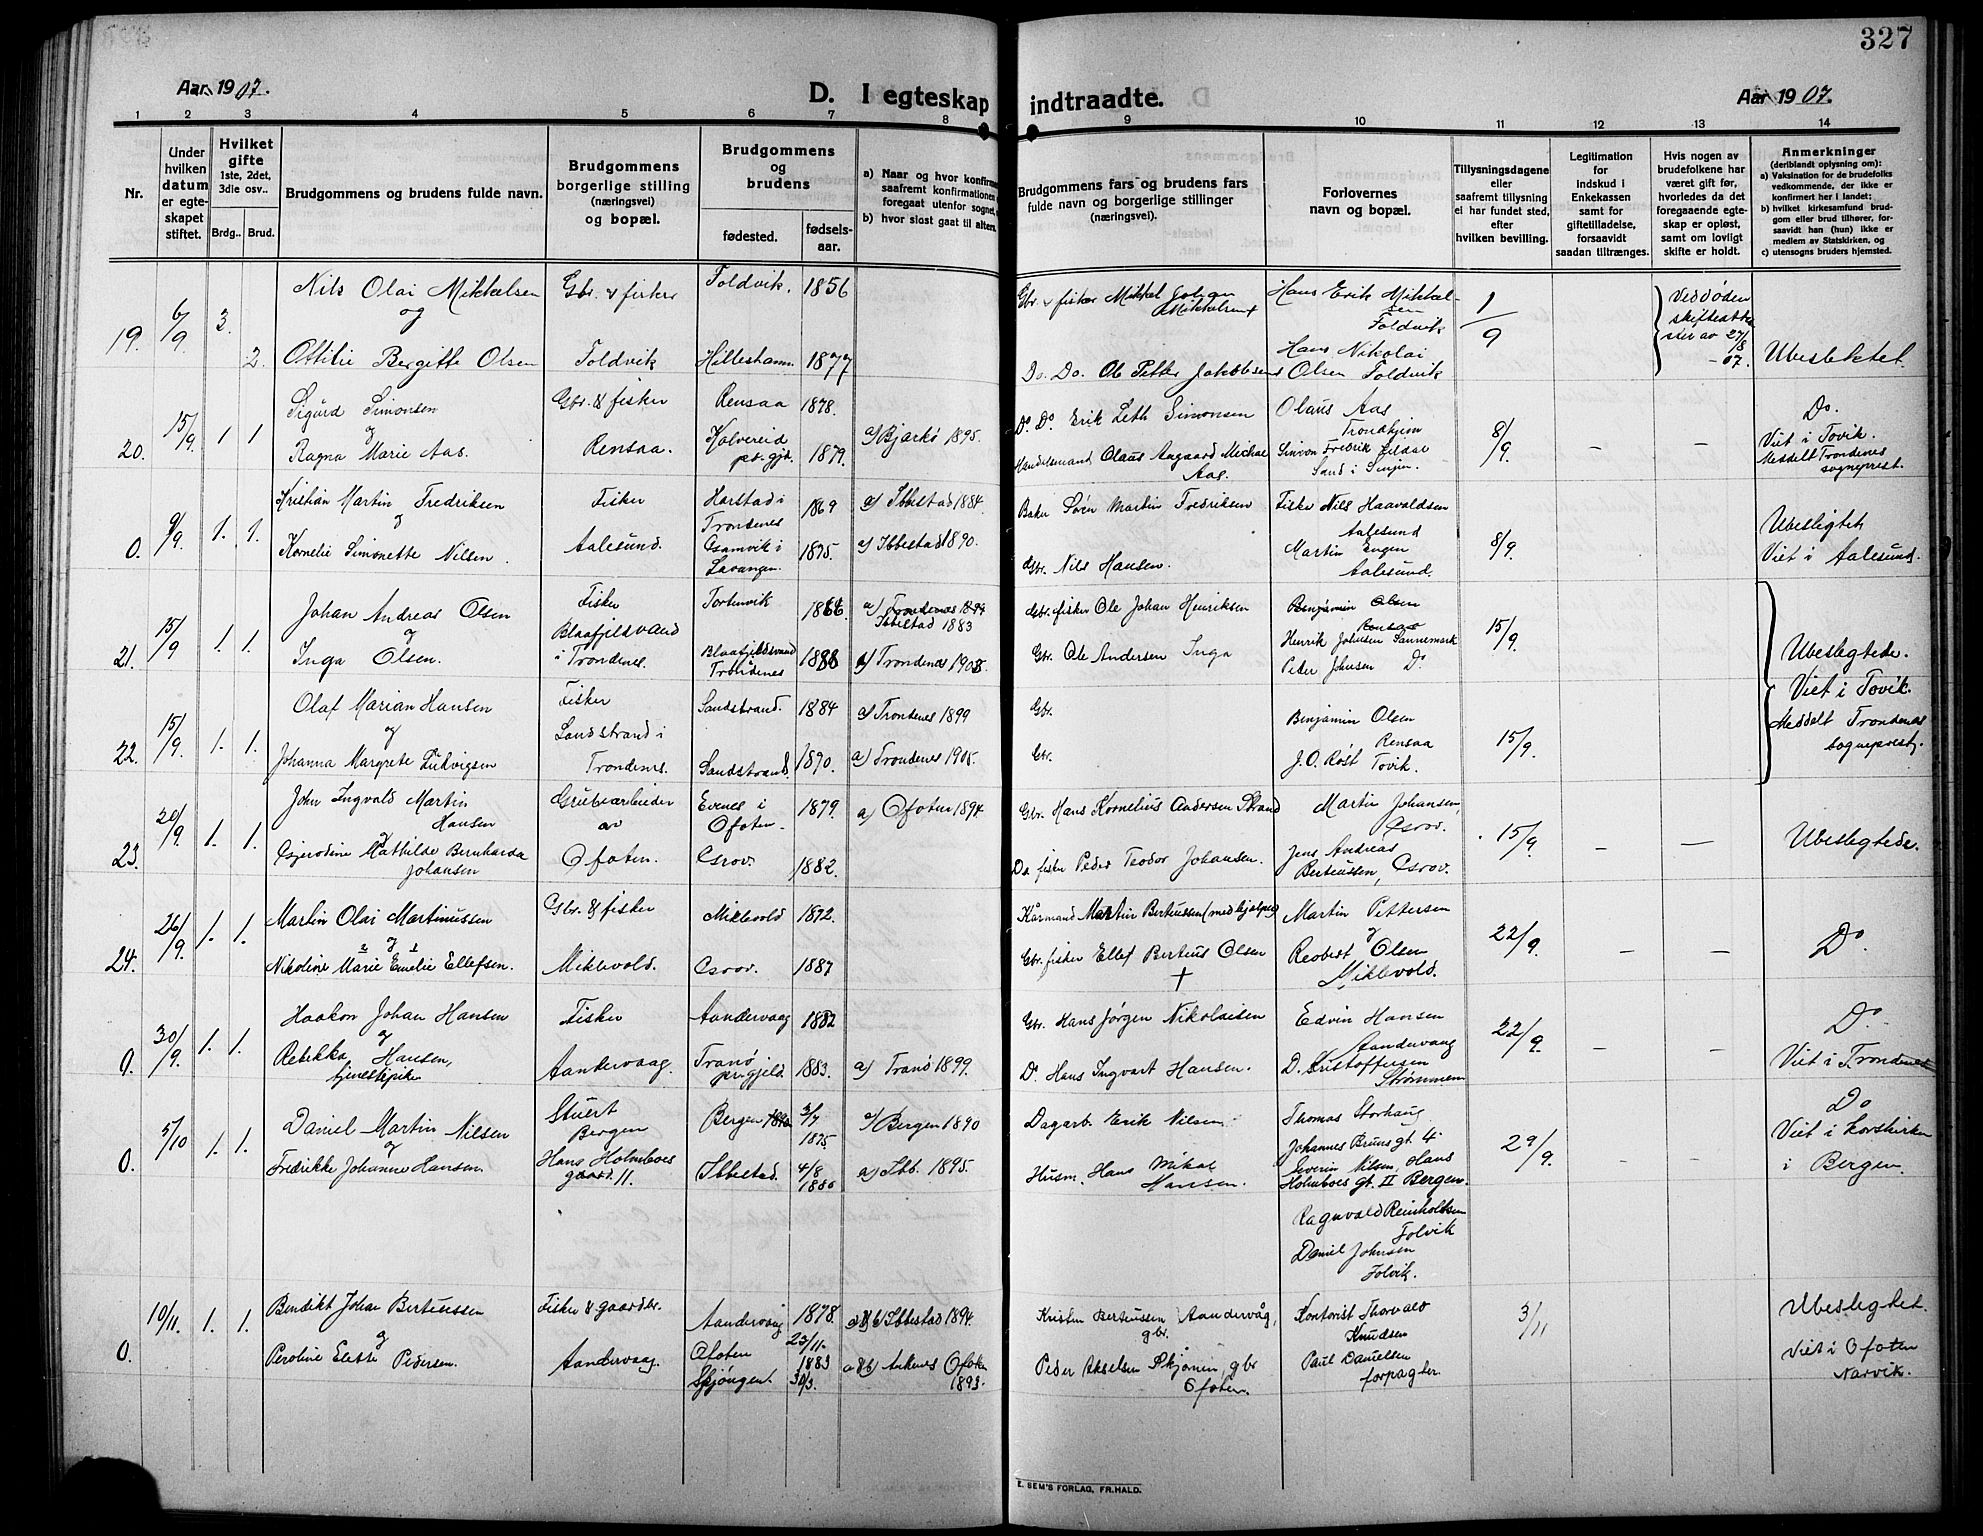 327
Aar 1907.
D. I egteskap indtraadte.
Aar 1907.
1 2 3 4 5 6 7 8 9 10 11 12 13 14
Nr.
Under hvilken datum er egteskapet stiftet.
Hvilket gifte 1ste, 2det, 3die osv..
Brdg.. Brud.
Brudgommens og brudens fulde navn.
Brudgommens borgerlige stilling (næringsvei) og bopæl.
Brudgommens og brudens
fødested.
fødsels-aar.
a) Naar og hvor konfirm
saafremt konfirmationen
foregaat utenfor sognet,
b) hvor sidst gaat til alters.
Brudgommens fars og brudens fars fulde navn og borgerlige stillinger (næringsvei).
Forlovernes navn og bopæl.
Tillysningsdagene eller saafremt tillysning ei har fundet sted, efter hvilken bevilling.
Legitimation for indskud i Enkekassen samt for giftetilladelse, forsaavidt saadan tiltrænges.
Hvis nogen av brudefolkene har været gift før, hvorledes da det foregaaende egteskap er opløst, samt om lovligt skifte er holdt.
Anmerkninger (deriblandt oplysning om): a) Vaksination for de brudefolks vedkommende, der ikke er konfirmert her i landet; b) hvilket kirkesamfund brudgom eller brud tilhører, forsaavidt han (hun) ikke er medlem av Statskirken, og c) utensogns bruders hjemsted.
19. 6/9 3. 2.
Nils Olai Mikkelsen
og
Ottilie Bergitte Olsen
Gbr. & fisker
Foldvik
Foldvik. 1856
Hilleshamn. 1877
Gbr. & fisker Mikkel Johan Mikkelsen
Do. Do. Ole Petter Jakobsen
Hans Erik Mikkelsen Foldvik
Hans Nikolai Olsen Foldvik
1/9
Ved døden skifteattester av 27/8 -07.
Ubeslektet.
20. 15/9. 1 1
Sigurd Simonsen
og
Ragna Marie Aas.
Gbr. & fisker
Rensaa.
Rensaa 1878.
Kolvereid pr.gjd. 1879.
a) Bjarkö 1895.
Do. Do. Erik Leth Simonsen
Handelsmand Olaus Aagaard Aas.
Olaus Aas Trondhjem
Simon Fredrik
Sand i Senjen.
8/9. – –
Do.
Viet i Tovik.
Meddelt Trondenes sogneprest.
0. 9/9. 1. 1.
Kristian Martin Fredriksen
og
Kornelie Simonette Nilsen.
Fisker
Aalesund.
Harstad i Trondenes 1869
i Lavangen. 1875.
a) Ibbestad 1884.
a) Ibbestad 1890.
Baker Sören Martin Fredriksen
Gbr. Nils Hansen.
Fisker Nils Haavaldsen
Aalesund
Martin
Aalesund.
8/9.
Ubesligtet
Viet i Aalesund.
21. 15/9 1. 1.
Johan Andreas Olsen
og
Inga Olsen.
Fisker
Blaafjeldvand
i Trondenes.
Blaafjeldsvand Trondenes 1888
a) Trondenes 1894
Ibbestad 1883
a) Trondenes 1905.
Gbr. fisker Ole Johan Henriksen
Gbr. Ole Andersen Inga
Benjamin Olsen
Rensaa
Henrik Johnsen Sannemark
Peder Johnsen Do
15/9.
Ubeslegtede.
Viet i Tovik.
Meddelt Trondenes sogneprest.
22. 15/9. 1. 1.
Olaf Marian Hansen
og
Johanna Margrete Ludvigsen
Fisker
Sandstrand i
Trondenes.
Sandstrand. 1884
Sandstrand. 1890.
a) Trondenes 1899
a) Trondenes 1905.
Gbr.
Gbr.
Benjamin Olsen
Rensaa
J.O. Röst Tovik.
15/9.
23. 20/9. 1. 1.
John Ingvald Martin Hansen
og
Mathilde Bernharda Johansen
Grubearbeider
av
Ofoten.
Evenes i Ofoten. 1879.
Gsrov. 1882.
a) Ofoten 1894.
Gbr. Hans Kornelius Andersen Strand
Do fisker Peder Teodor Johansen.
Martin Johansen, Gsrov.
Jens Andreas Berteussen, Gsrov.
15/9. – –
Ubeslegtede.
24. 26/9. 1. 1.
Martin Olai Martinussen
og
Nikoline Marie Emelie Ellefsen.
Gbr. & fisker
Miklevold.
Miklevold 1872.
Gsrov. 1887
Kårmand Martin Berteussen (medhjelper)
Gbr. fisker Ellef Berteus Olsen †
Martin Pettersen
og
Reobert Olsen
Miklevold.
22/9. – –
Do
0. 30/9. 1. 1.
Haakon Johan Hansen
og
Rebekka Hansen,
tjenestepike
Fisker
Aandervaag.
Aandervaag 1882
Tranö pr.gjeld. 1883.
a) Tranö 1899.
Gbr. Hans Jörgen Nikolaisen
Do. Hans Ingvart Hansen.
Edvin Hansen
Aandervaag
D. Kristoffersen
Strømmen
22/9. – –
Do
Viet i Trondenes
0. 5/10 1. 1.
Daniel Martin Nilsen
og
Fredrikke Johanne Hansen.
Stuert
Bergen
Hans Holmboes
gaard 11.
Bergen 3/7 1875.
Ibbestad. 4/8 1880
a) Bergen 1890
a) Ibb. 1895.
Dagarb. Erik Nilsen
Husm. Hans Mikal Hansen.
Thomas Storhaug
Johannes Bruns gt. 4
Severin Nilsen, Hans
Holmboes gt. II Bergen.
Ragnvald Reinholdtsen
Folvik
Daniel Johnsen
Folvik.
29/9. – –
Do
Viet i Korskirken
i Bergen.
0. 10/11. 1. 1.
Benedikt Johan Berteussen
og
Peroline Elette Pedersen.
Fisker & gaardbr.
Aandervaag.
Aandervaag 1878. 23/11.
Ofoten 1883
30/3.
a & b) Ibbestad 1894.
a & b) Ankenes Ofoten 1893.
Kristen Berteussen Aandervåg, gbr.
Peder Akselsen Skjönin, gbr Ofoten.
Kontorist Thorvald Knudsen
Paul Danielsen
forpagter.
3/11
Ubeslegtet.
Viet i Ofoten
Narvik.
E. SEM'S FORLAG, FR.HALD.